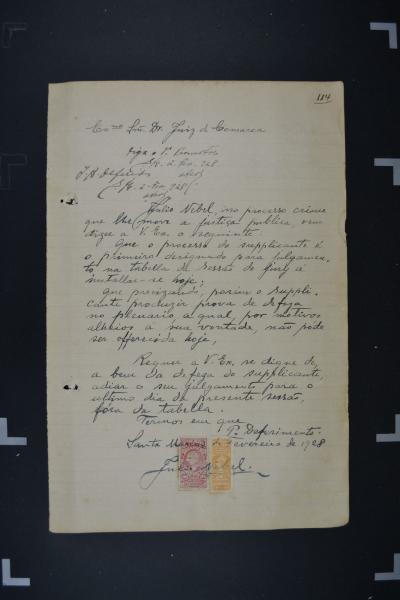 114
Exmo Snr. Dr. Juiz de Comarca
Diga o Dr. Promotor
S. M. 2. Fev. 928
J. A. Deferido
S. M. 2-Fev. 928
Julio Nebel, no processo crime
que lhe move a justiça publica vem
dizer a V. Exa. o seguinte:
Que o processo do supplicante é
o primeiro designado para julgamen-
to na tabella da sessão do jury a
installar-se hoje;
que precizando, porém o suppli-
cante produzir prova de defeza
no plenario, a qual, por motivos
alheios á sua vontade, não póde
ser offerecida hoje,
Requer a V. Ex. se digne de,
a bem da defeza do supplicante,
adiar o seu julgamento para o
ultimo dia da presente sessão,
fóra da tabella.
Termos em que
P. Deferimento.
Santa de Fevereiro de 1928
Julio Nebel